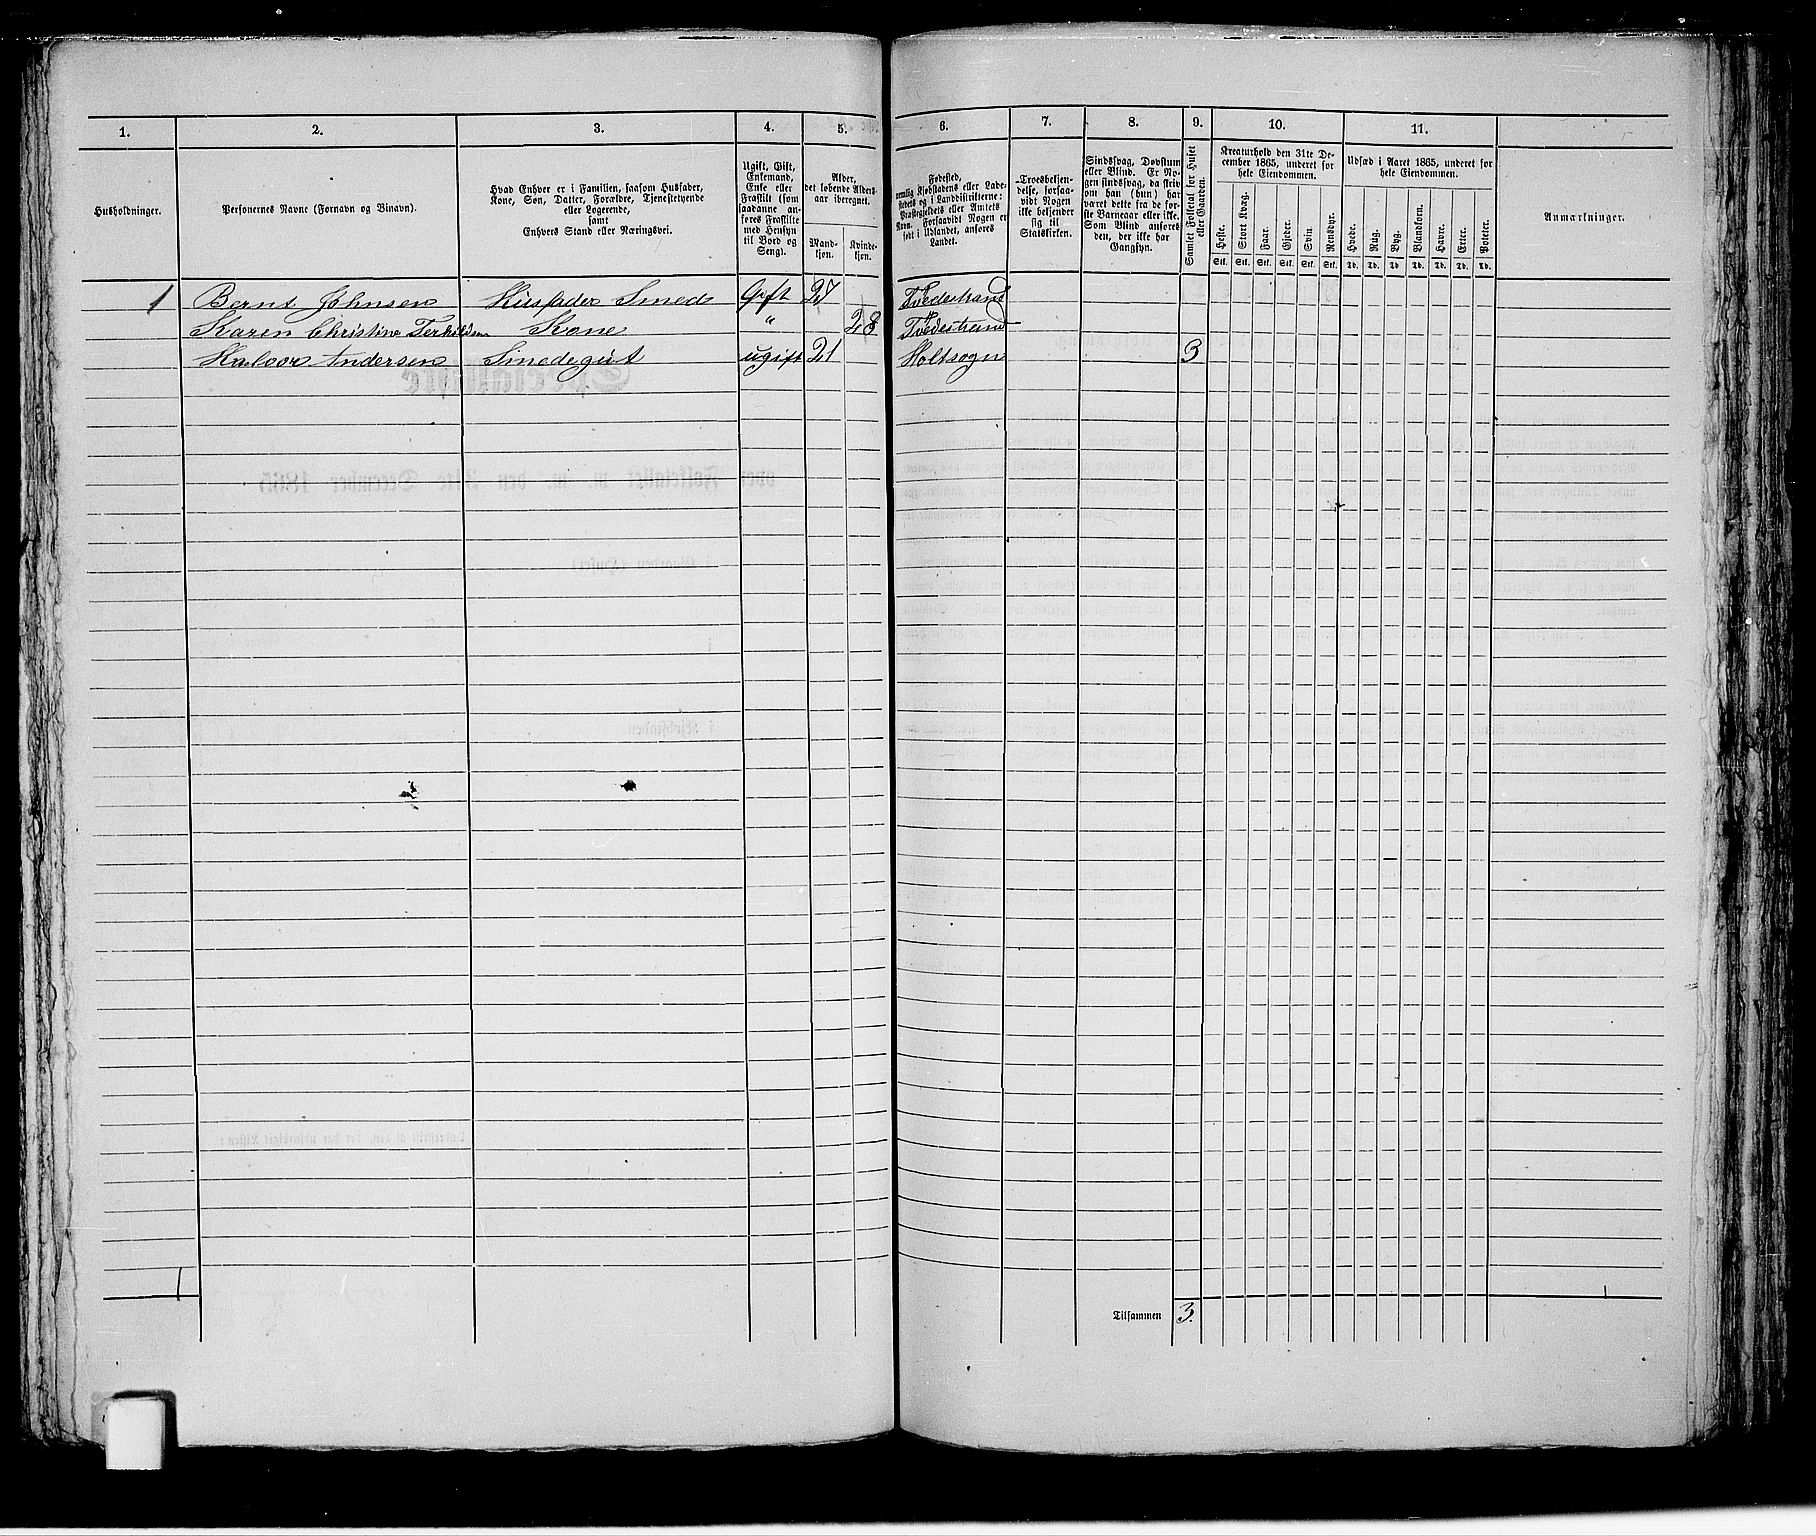 1. 2. 3. 4. 5. 6. 7. 8. 9. 10. 11.
Husholdninger.
Personernes Navne (Fornavn og Binavn).
Hvad Enhver er i Familien, saasom Husfader,
Kone, Søn, Datter, Forældre, Tjenestetyende
eller Logerende,
samt
Enhvers Stand eller Næringsvei.
Ugift, Gift,
Enkemand,
Enke eller
Fraskilt (som
saadanne an-
føres Fraskilte
med Hensyn
til Bord og
Seng).
Alder,
det løbende Alders-
aar iberegnet.
Mand-
kjøn.
Kvinde-
kjøn.
Fødested,
nemlig Kjøbstadens eller Lade-
stedets og i Landdistrikterne:
Præstegjeldets eller Amtets
Navn. Forsaavidt Nogen er
født i Udlandet, anføres
Landet.
Troesbekjen-
delse, forsaa-
vidt Nogen
ikke bekjender
sig til
Statskirken.
Sindssvag, Døvstum
eller Blind. Er No-
gen sindssvag, da skriv
om han (hun) har
været dette fra de før-
ste Barneaar eller ikke.
Som Blind anføres
den, der ikke har
Gangsyn.
Samlet Folketal for Huset
eller Gaarden.
Kreaturhold den 31te De-
cember 1865, underet for
hele Eiendommen.
Heste. Stort Kvæg. Faar. Gjeder. Svin. Rensdyr.
Stk. Stk. Stk. Stk. Stk. Stk.
Udsæd i Aaret 1865, underet for
hele Eiendommen.
Hvede. Rug. Byg. Blandkorn. Havre. Erter. Poteter.
Td. Td. Td. Td. Td. Td. Td.
Anmærkninger.
1 Bernt Johnsen Husfader Smed Gift 27 Tvedestrand
Karen Christine Terkildsen Kone " 28 Tvedestrand
Halvor Andersen Smedegut ugift 21 Holt sogn 3
Tilsammen 3.